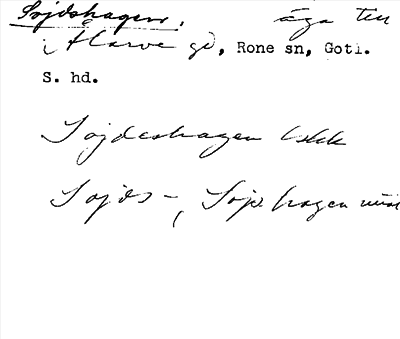 Sojdshagen, äga till
i Alarve gd, Rone sn, Gotl.
S. hd.
Sojdeshagen Lskk
Sojds-, Sojdhagen mit